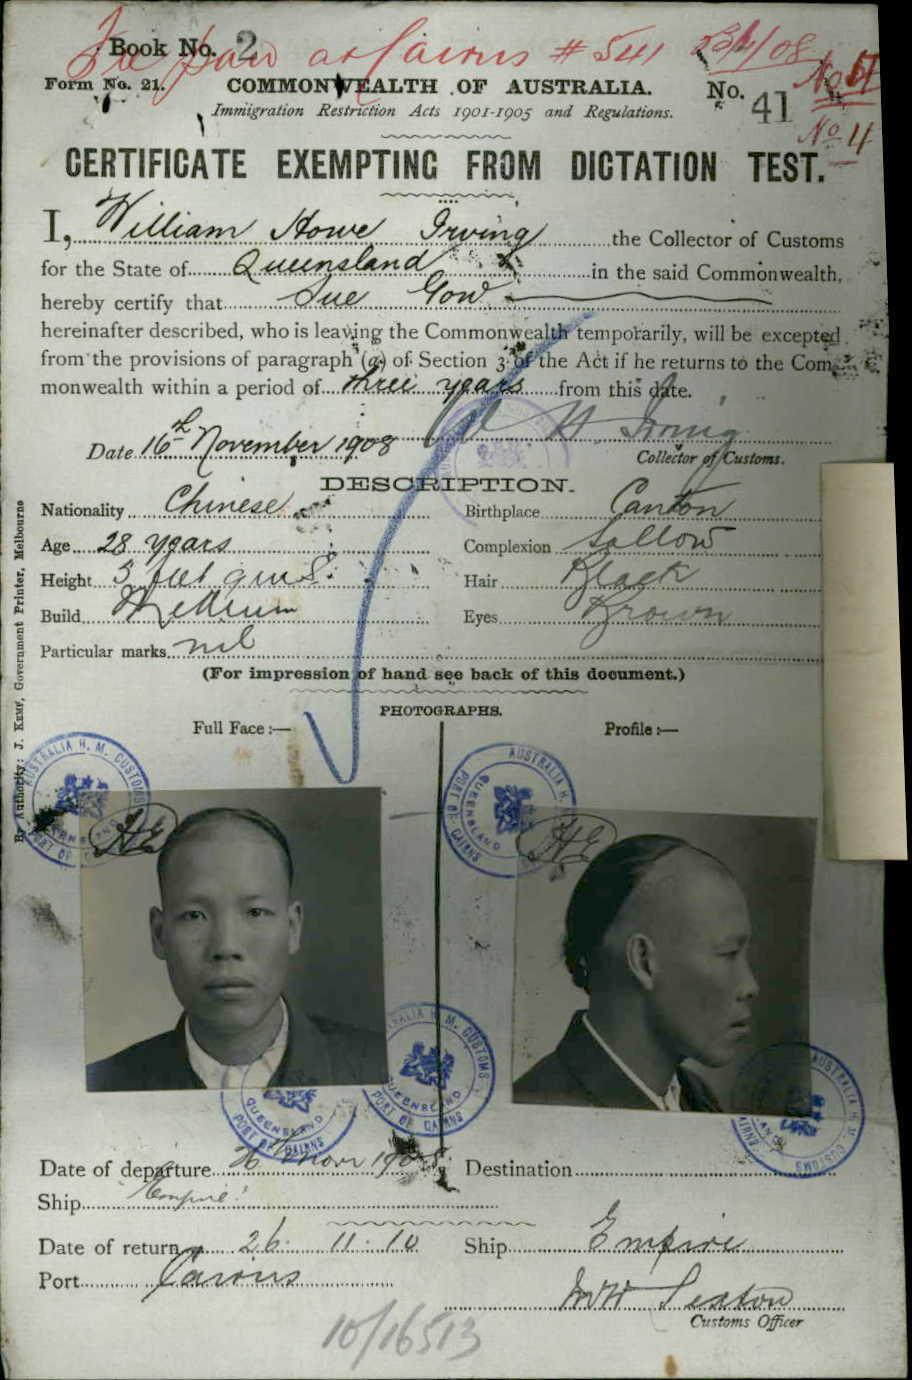 Book No. 2
Fee paid at Cairns # 541 23/1/08
Form No. 21.
COMMONWEALTH OF AUSTRALIA.
No. 41
No 4
Immigration Restriction Acts 1901-1905 and Regulations.
CERTIFICATE EXEMPTING FROM DICTATION TEST.
I, William Howe Irving the Collector of Customs
for the State of Queensland in the said Commonwealth,
hereby certify that Sue Gow
hereinafter described, who is leaving the Commonwealth temporarily, will be excepted
from the provisions of paragraph (a) of Section 3 of the Act if he returns to the Com-
monwealth within a period of three years from this date.
W H Irving
Date 16th November 1908
Collector of Customs.
DESCRIPTION.
Nationality Chinese
Birthplace Canton
Age 28 years
Complexion Sallow
Height 5 feet 9 ins.
Hair Black
Build Medium
Eyes Brown
Particular marks nil
(For impression of hand see back of this document.)
PHOTOGRAPHS.
Full Face :—
Profile :—
By Authority: J. KEMP, Government Printer, Melbourne
AUSTRALIA H. M. CUSTOMS
QUEENSLAND
PORT OF CAIRNS
HE
AUSTRALIA H.
QUEENSLAND
PORT OF CAIRNS
HE
AUSTRALIA H. M. CUSTOMS
QUEENSLAND
PORT OF CAIRNS
QUEENSLAND
PORT OF CAIRNS
AUSTRALIA H. M. CUSTOMS
CAIRNS
Date of departure Novr 1908
Destination
Ship Empire
Date of return 26. 11. 10
Ship Empire
Port Cairns
Customs Officer
10/16513